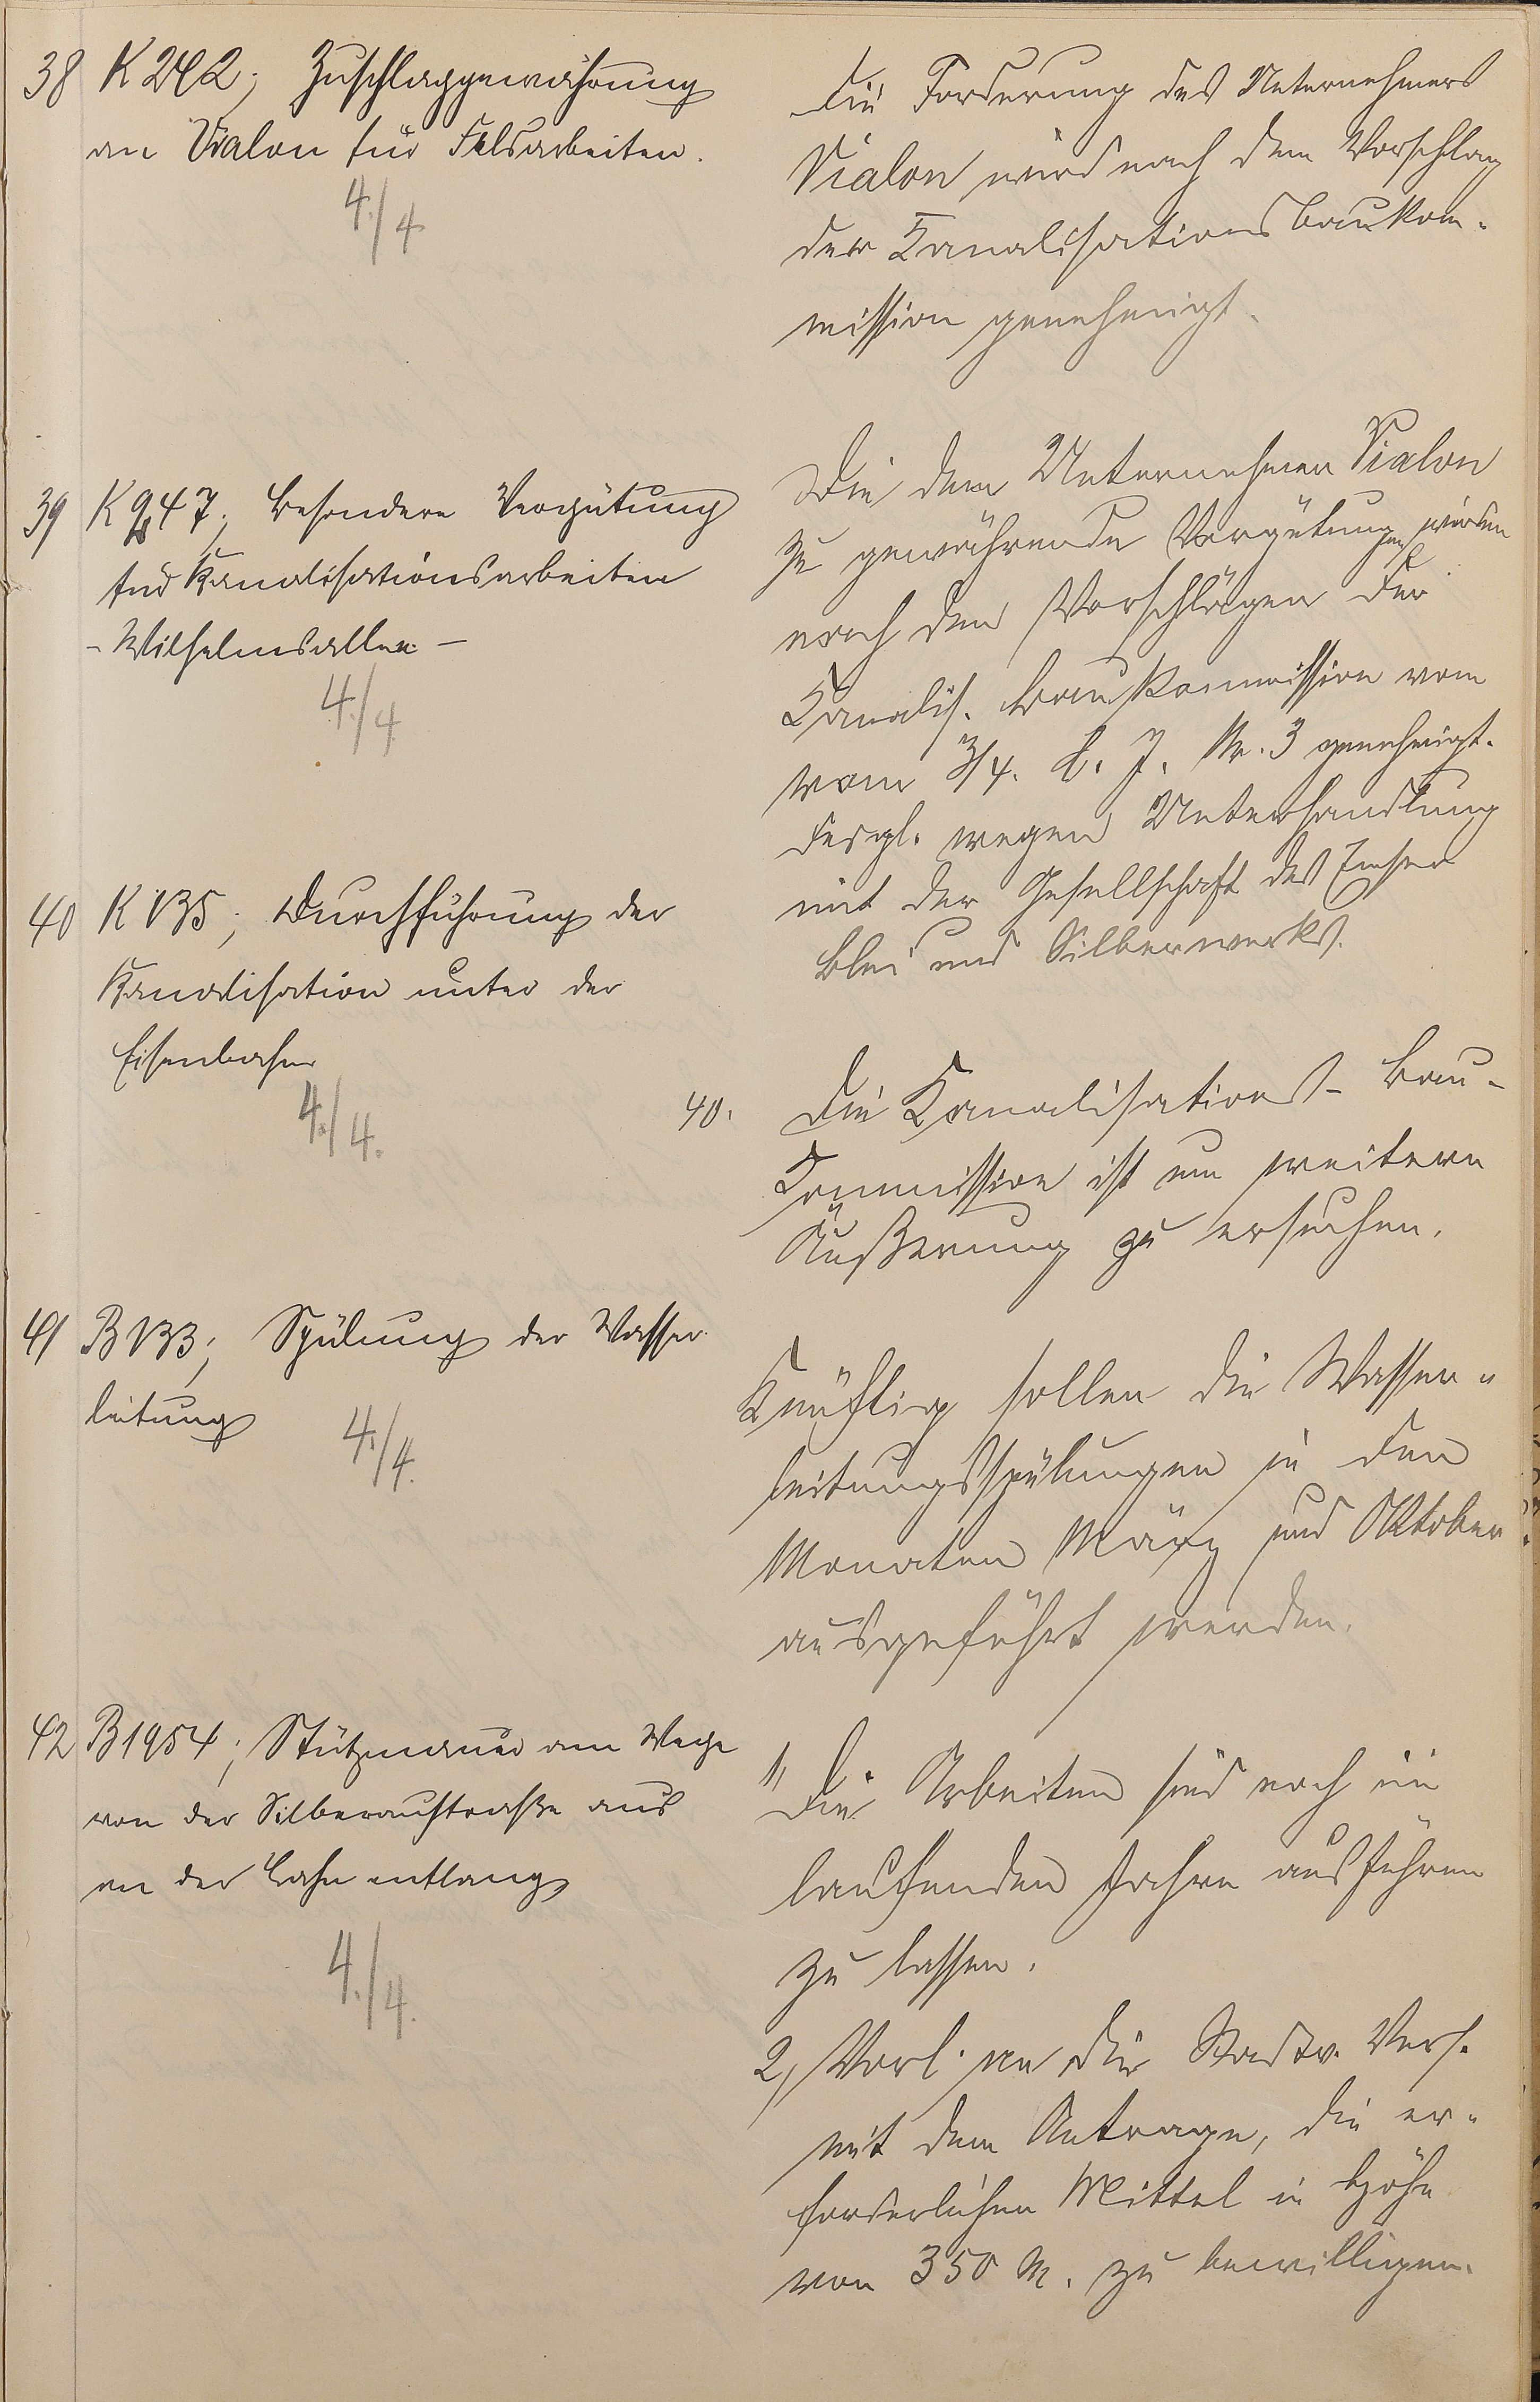 38 K 242; Zuschlaggewährung
an Vialon für Felsarbeiten.
4./4
Die Forderung des Unternehmers
Vialon wird nach dem Vorschlag
der Kanalisationsbaukom-
mission genehmigt.
39 K 947; Besondere Vergütung
für Kanalisationsarbeiten
- Wilhelmsallee -
4./4
Die dem Unternehmer Vialon
zu gewährende Vergütungen werden
nach den Vorschlägen der
Kanalis. Baukommission vom
vom 3/4. d. J. Nr. 3 genehmigt.
Desgl. wegen Unterhandlung
mit der Gesellschaft des Emser
Blei und Silberwerks.
40 K 135; Durchführung der
Kanalisation unter der
Eisenbahn
4./4.
40. Die Kanalisations-Bau-
Kommission ist um weitere
Äußerung zu ersuchen.
41 B 133; Spülung der Wasser-
leitung
4./4.
Künftig sollen die Wasser-
leitungsspülungen in den
Monaten März und Oktober
ausgeführt werden.
42 B 1954; Stützmauer am Wege
von der Silberaustraße aus
an der Lahn entlang
4./4.
1, Die Arbeiten sind noch im
laufenden Jahre ausführen
zu lassen.
2, Vorl. an die Stadtv. Vers.
mit dem Antrage, die er-
forderlichen Mittel in Höhe
von 350 M. zu bewilligen.